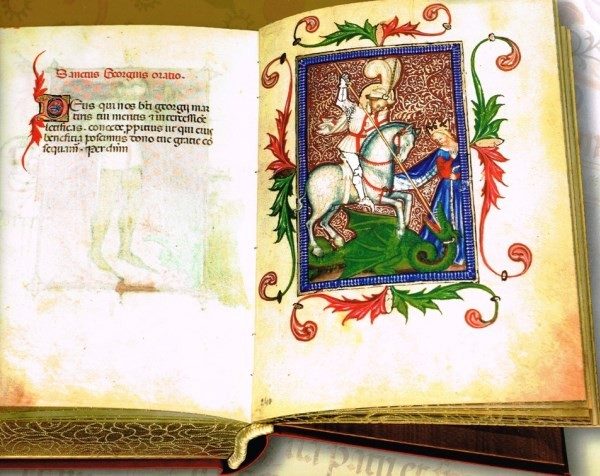 Sanctus Georgius oratio.
Deus qui nos bti georgij mar
tiris tui meritis et intercessione
letificas. concede ppitius ut qui eius
beneficia poscimus dono tue gratie co
sequam̅. Per dnm